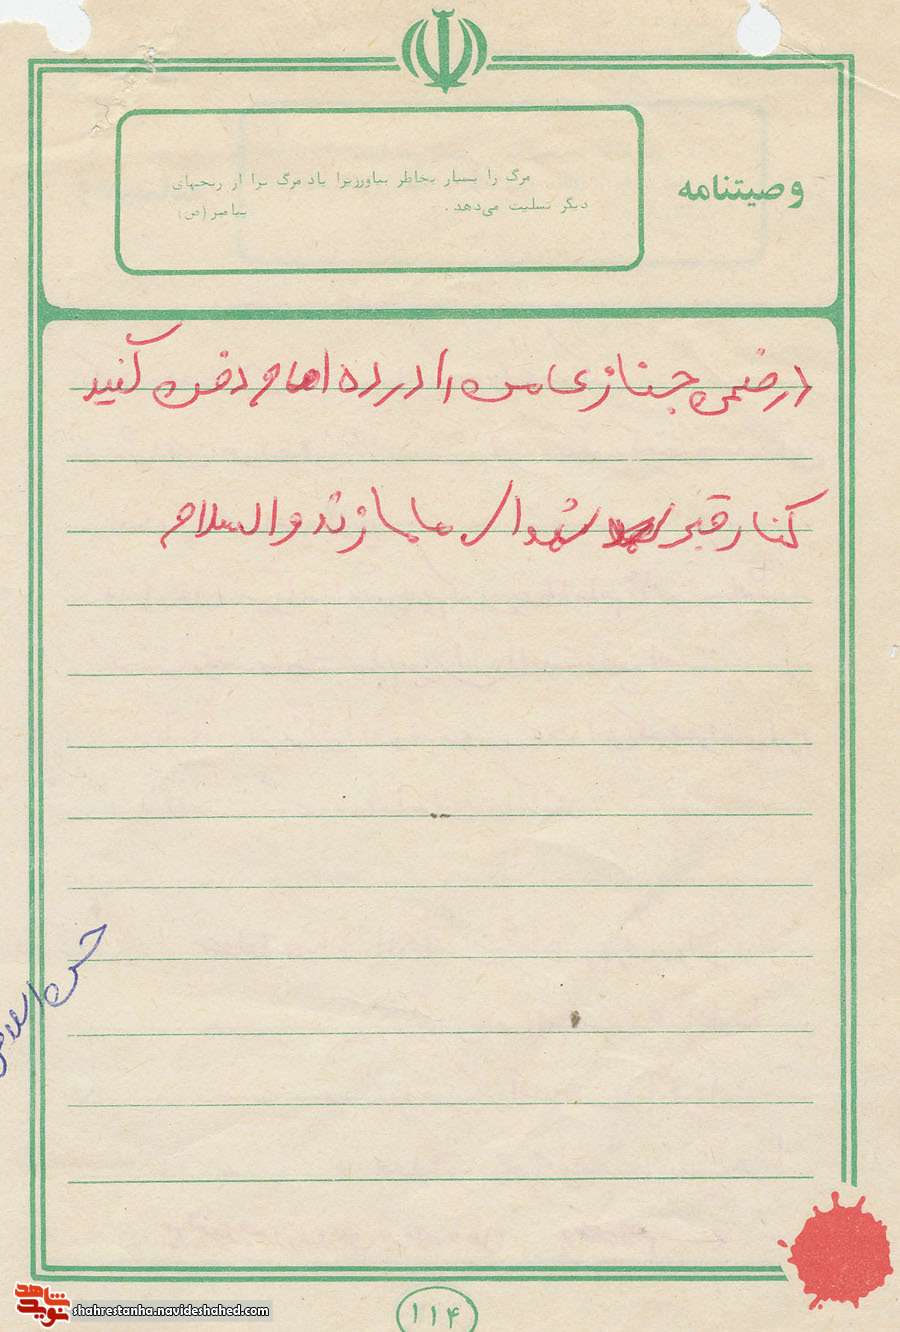 وصیتنامه
مرگ را بسیار بخاطر بیاورزیرا یاد مرگ ترا از رنجهای
دیگر تسلیت می‌دهد.
پیامبر (ص)
در ضمن جنازه‌ی من را در ده امام دفن کنید
کنار قبر شهدا والسلام
حسن
۱۱۴
نوید شاهد
shahrestanha.navideshahed.com